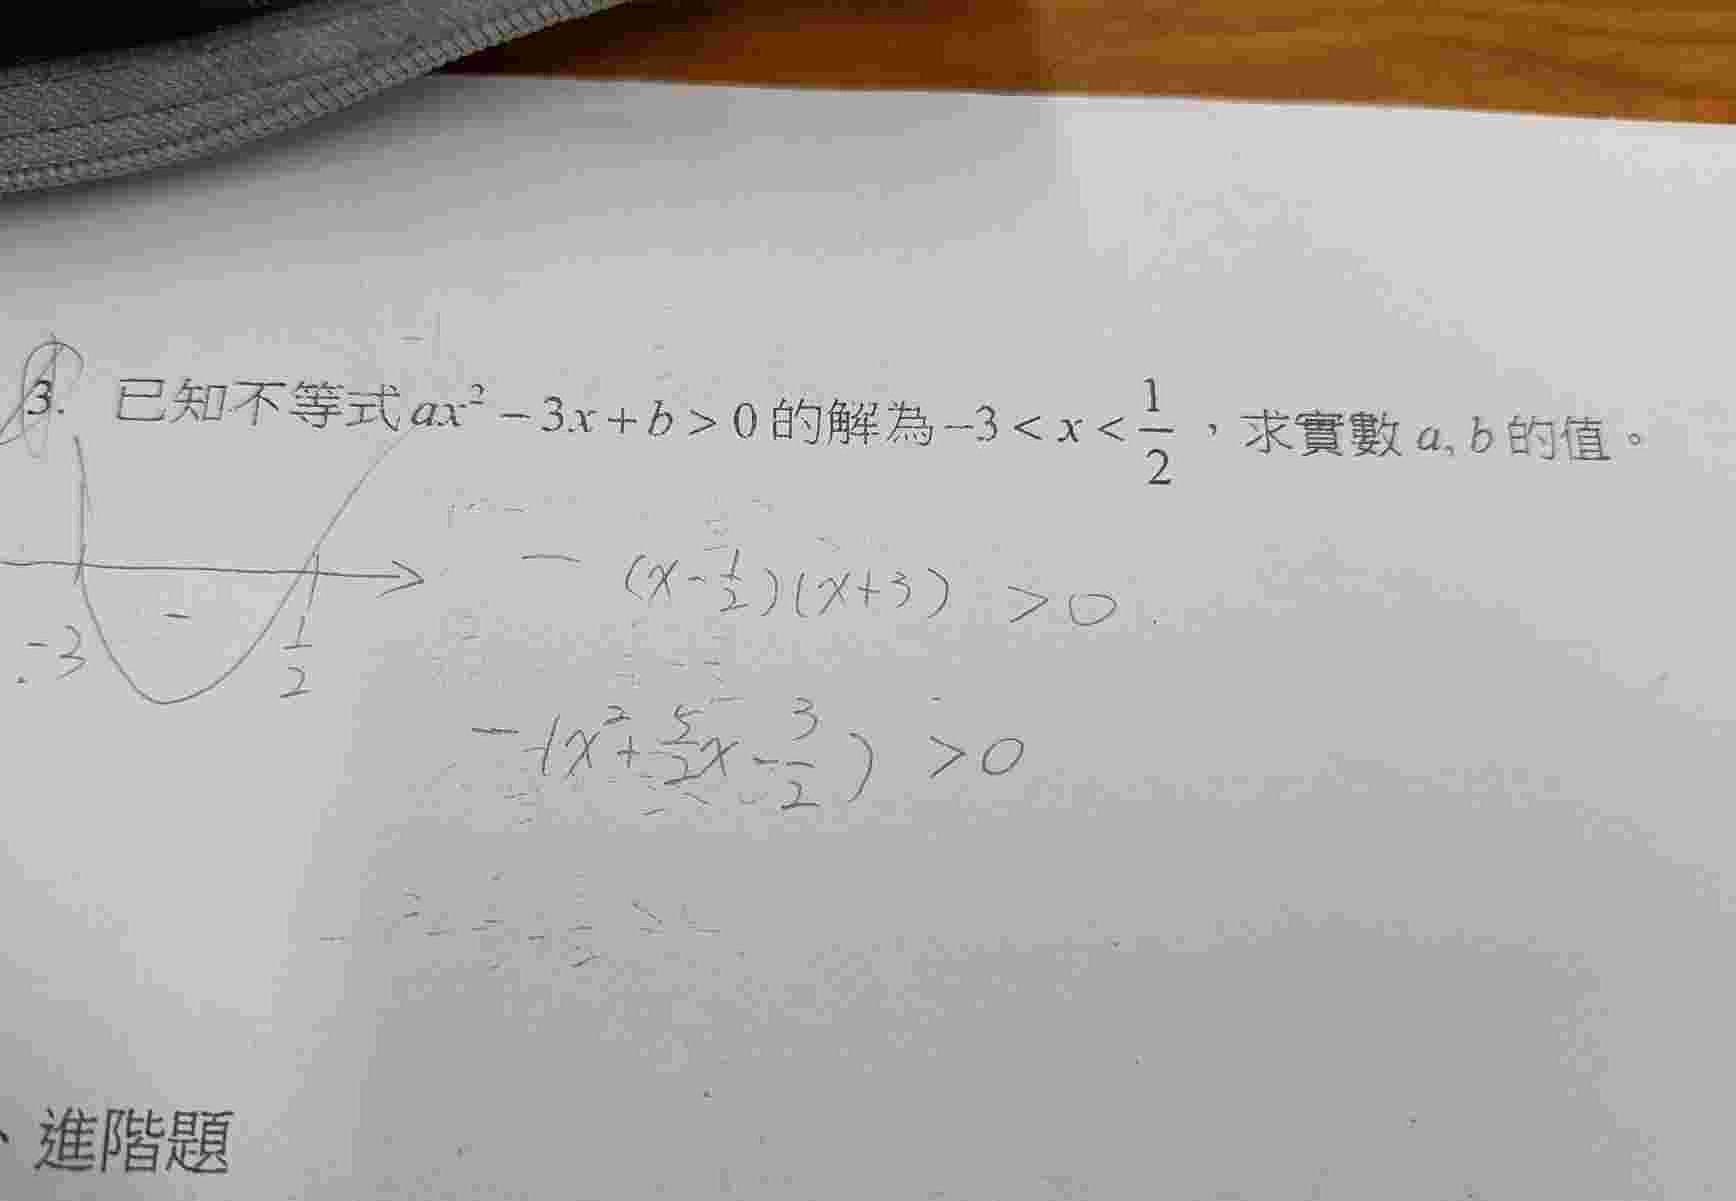 3. 已知不等式 ax² − 3x + b > 0 的解為 −3 < x < 1/2，求實數 a, b 的值。
−3 − 1/2
− (x − 1/2)(x + 3) > 0
− (x² + 5/2 x − 3/2) > 0
、進階題